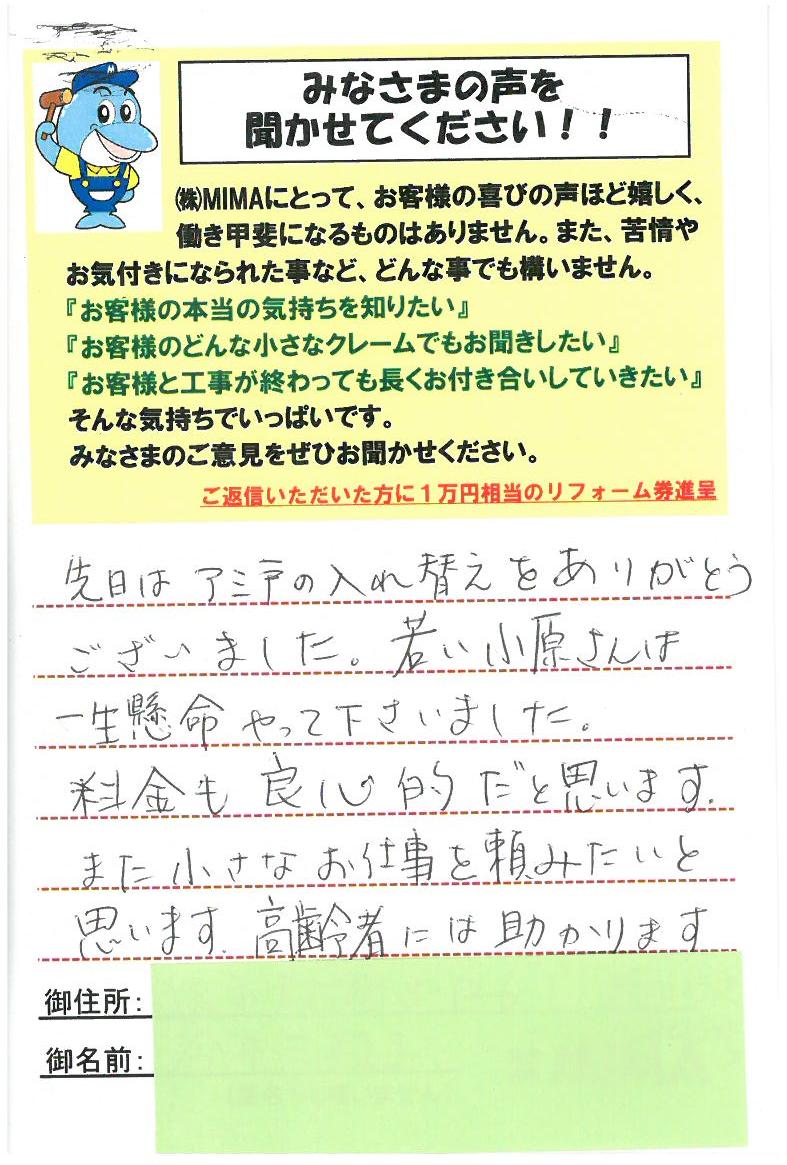 みなさまの声を
聞かせてください！！
㈱MIMAにとって、お客様の喜びの声ほど嬉しく、
働き甲斐になるものはありません。また、苦情や
お気付きになられた事など、どんな事でも構いません。
『お客様の本当の気持ちを知りたい』
『お客様のどんな小さなクレームでもお聞きしたい』
『お客様と工事が終わっても長くお付き合いしていきたい』
そんな気持ちでいっぱいです。
みなさまのご意見をぜひお聞かせください。
ご返信いただいた方に１万円相当のリフォーム券進呈
先日はアミ戸の入れ替えをありがとう
ございました。若い小原さんは
一生懸命やって下さいました。
料金も良心的だと思います.
また小さなお仕事を頼みたいと
思います.高齢者には助かります
御住所：
御名前：